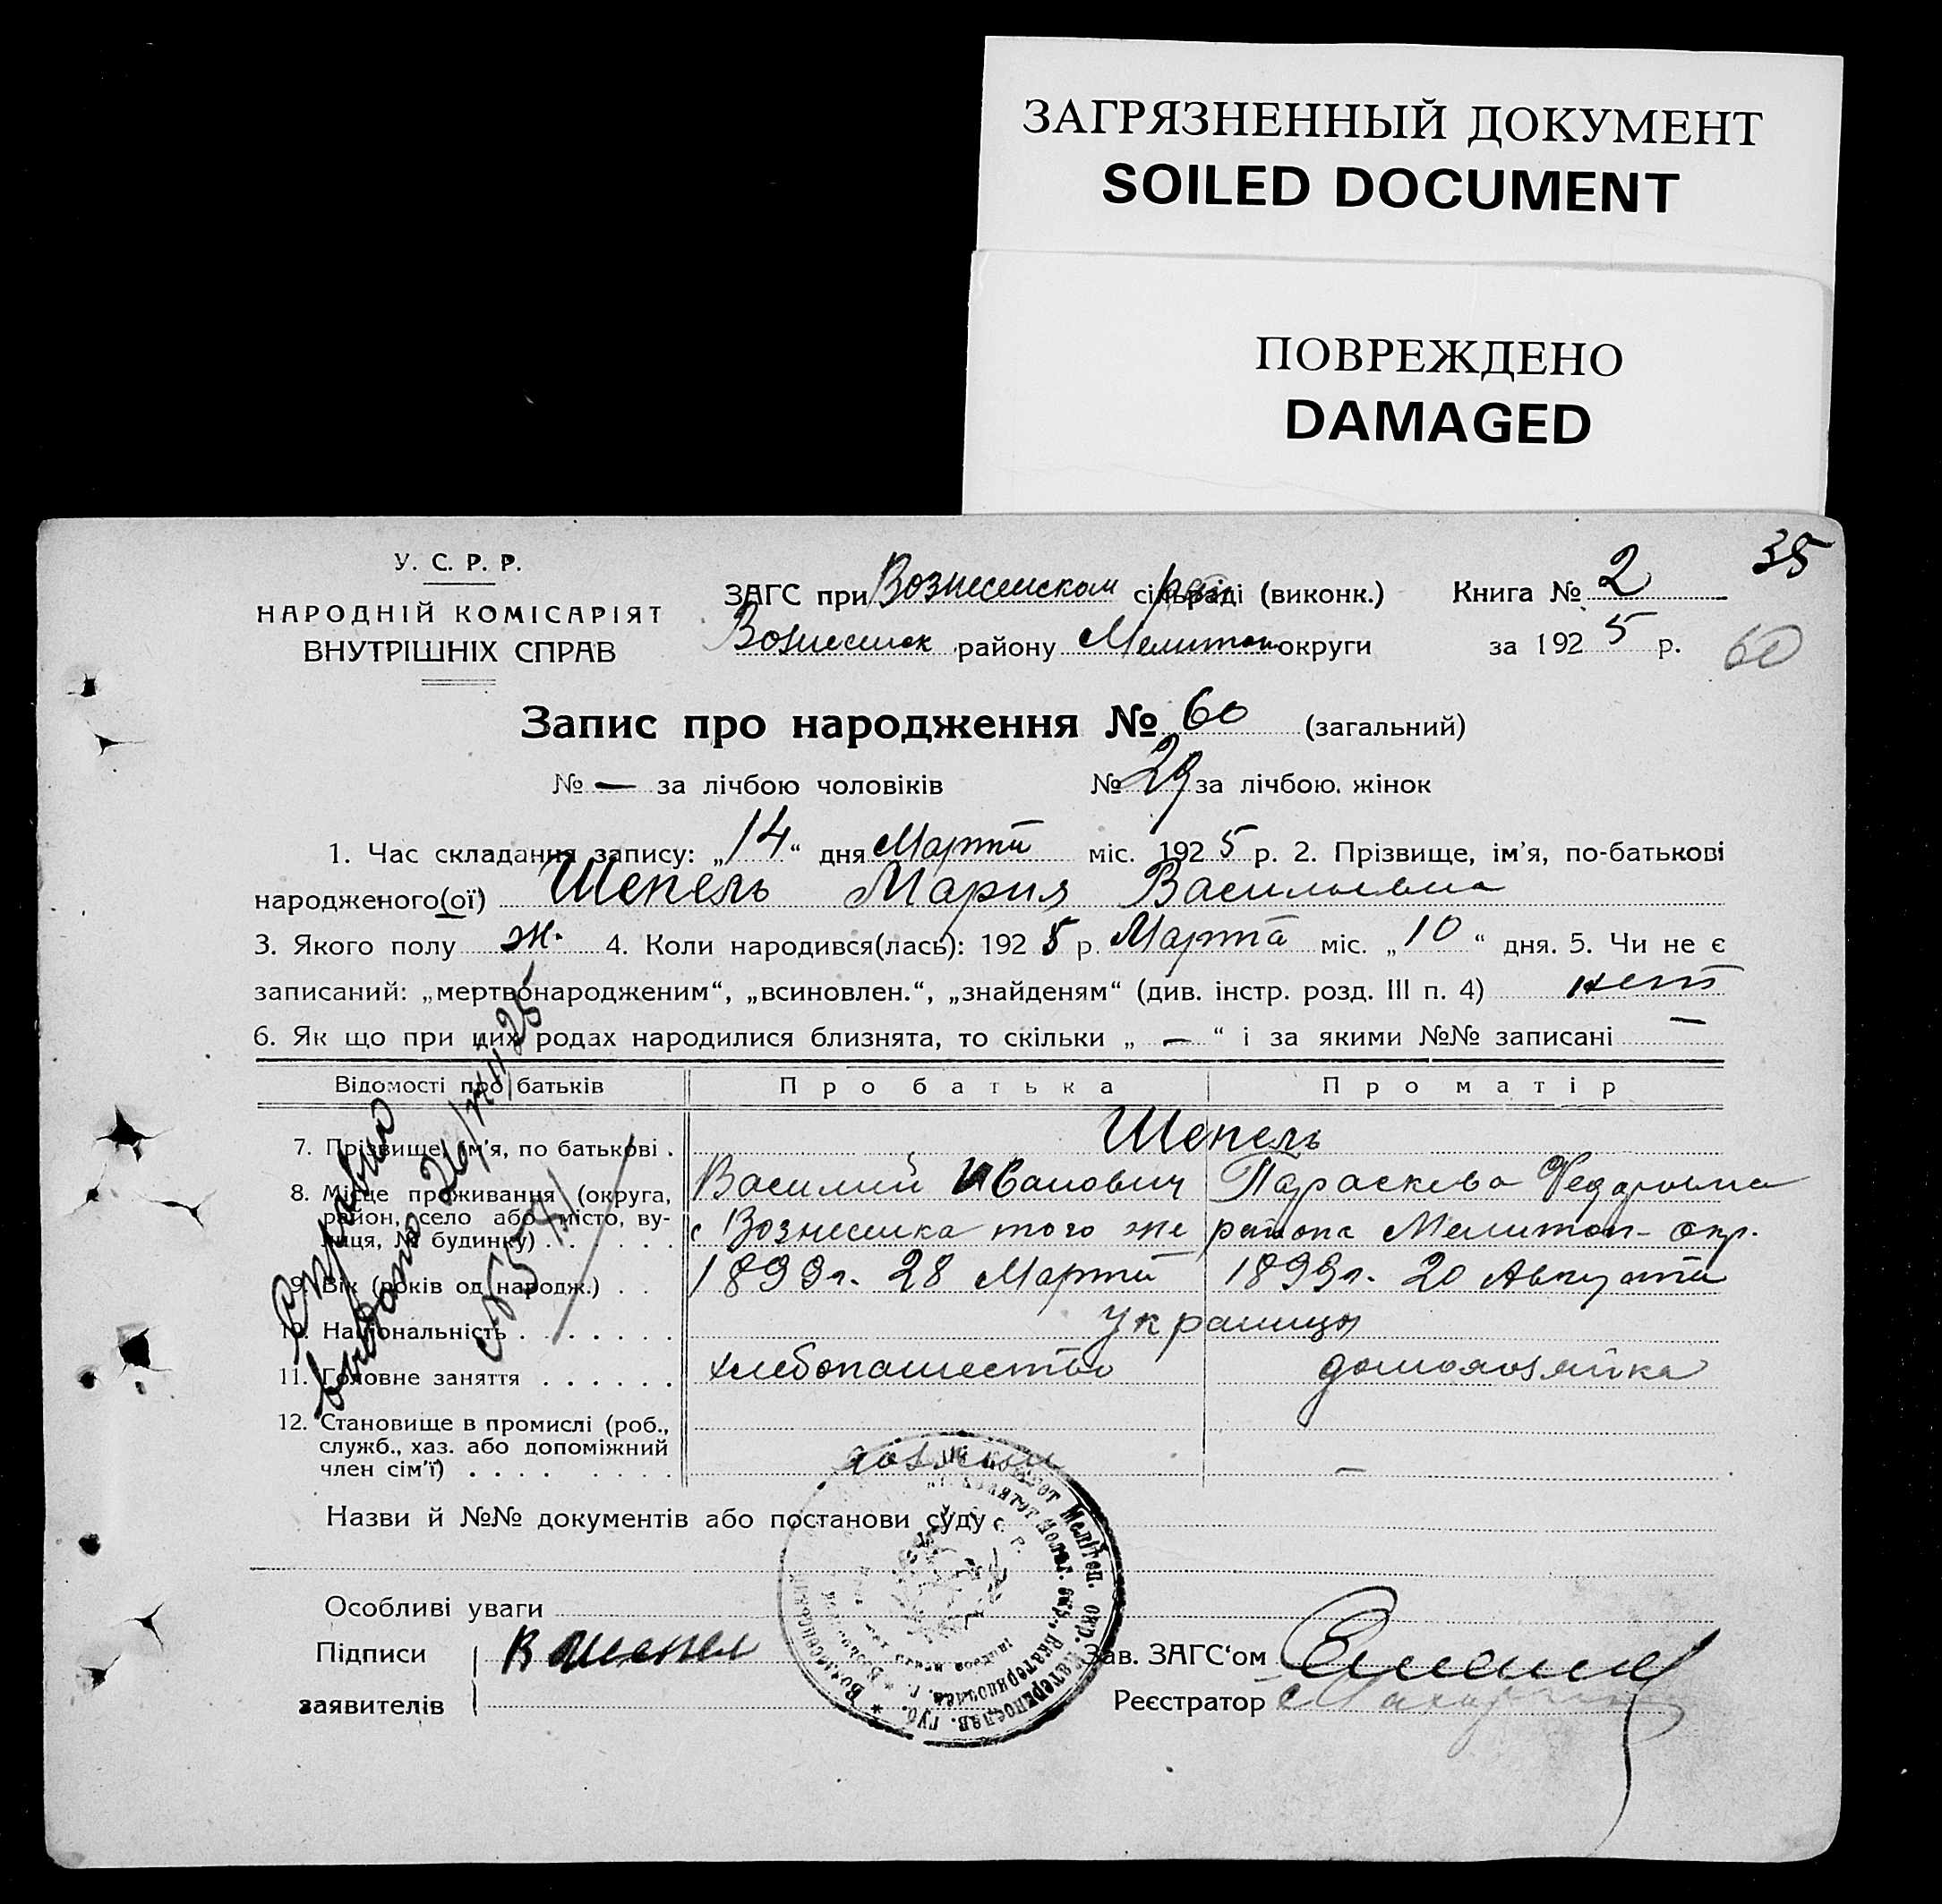 ЗАГРЯЗНЕННЫЙ ДОКУМЕНТ
SOILED DOCUMENT
ПОВРЕЖДЕНО
DAMAGED
35
У. С. Р. Р.
НАРОДНІЙ КОМІСАРІЯТ
ВНУТРІШНІХ СПРАВ
ЗАГС при Вознесенском сільраді (виконк.) Книга № 2
Вознесенск району Мелитоп округи за 1925 р.
60
Запис про народження № 60 (загальний)
№ — за лічбою чоловіків № 29 за лічбою. жінок
1. Час складання запису: „14“ дня Марта міс. 1925 р. 2. Прізвище, ім'я, по-батькові
народженого(ої) Шепель Мария Васильевна
3. Якого полу ж. 4. Коли народився(лась): 1925 р. Марта міс. „10“ дня. 5. Чи не є
записаний: „мертвонародженим“, „всиновлен.“, „знайденям“ (див. інстр. розд. III п. 4) нет
6. Як що при цих родах народилися близнята, то скільки „ — “ і за якими №№ записані —
Відомості про батьків Про батька Про матір
7. Прізвище, ім'я, по батькові . Шепель
Василий Иванович Параскева Федоровна
8. Місце проживання (округа,
район, село або місто, ву-
лиця, № будинку) . . . . . . с Вознесенка того же района Мелитоп - окр.
9. Вік (років од народж.) . . 1899г. 28 Марта 1899г. 20 Августа
10. Національність . . . . . . . украинцы
11. Головне заняття . . . . . . хлебопашество домохозяйка
12. Становище в промислі (роб.,
служб., хаз. або допоміжний
член сім'ї) . . . . . . . . хозяин —
Справка
выдана
№ 571
Назви й №№ документів або постанови суду
Особливі уваги
Підписи В Шепел Зав. ЗАГС'ом
заявителів Реєстратор